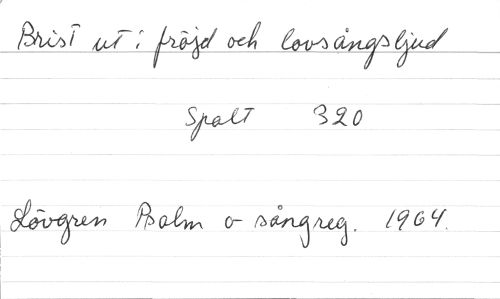 Brist ut i fröjd och lovsångsljud
Spalt 320
Lövgren Psalm o sångreg. 1964.